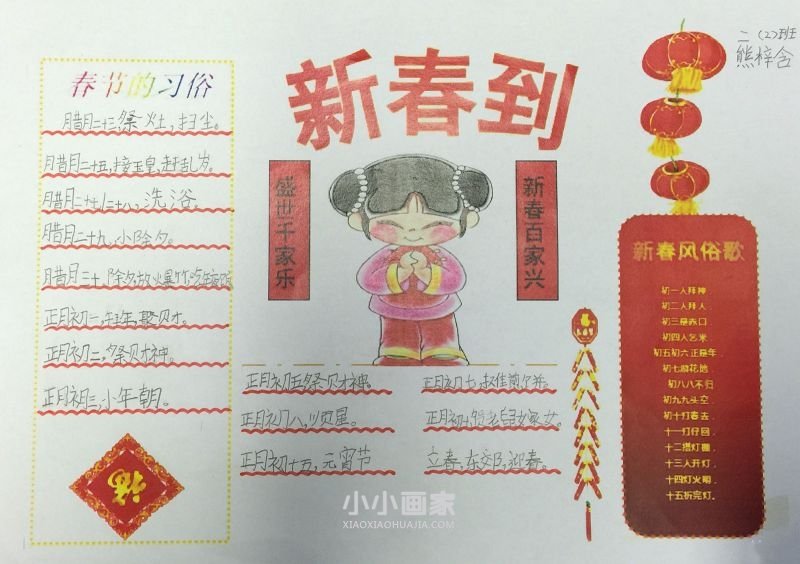 二（2）班
熊梓含
新春到
春节的习俗
腊月二十三祭灶，扫尘。
腊月二十五，接玉皇，赶乱岁。
腊月二十七、二十八，洗浴。
腊月二十九，小除夕。
腊月三十 除夕，放火爆竹，吃年夜饭
正月初一，年，聚财。
正月初二，祭财神。
正月初三，小年朝。
福
盛世千家乐
新春百家兴
正月初五祭财神。
正月初八，顺星。
正月初十五，元宵节
正月初七，
正月初十，老鼠嫁女。
立春，东郊，迎春。
新春风俗歌
初一人拜神
初二人拜人
初三是赤口
初四人乞米
初五初六正是年
初七游花地
初八八不归
初九九头空
初十打春去
十一打仔回
十二搭灯棚
十三人开灯
十四灯火明
十五拆完灯。
小小画家
XIAOXIAOHUAJIA.COM